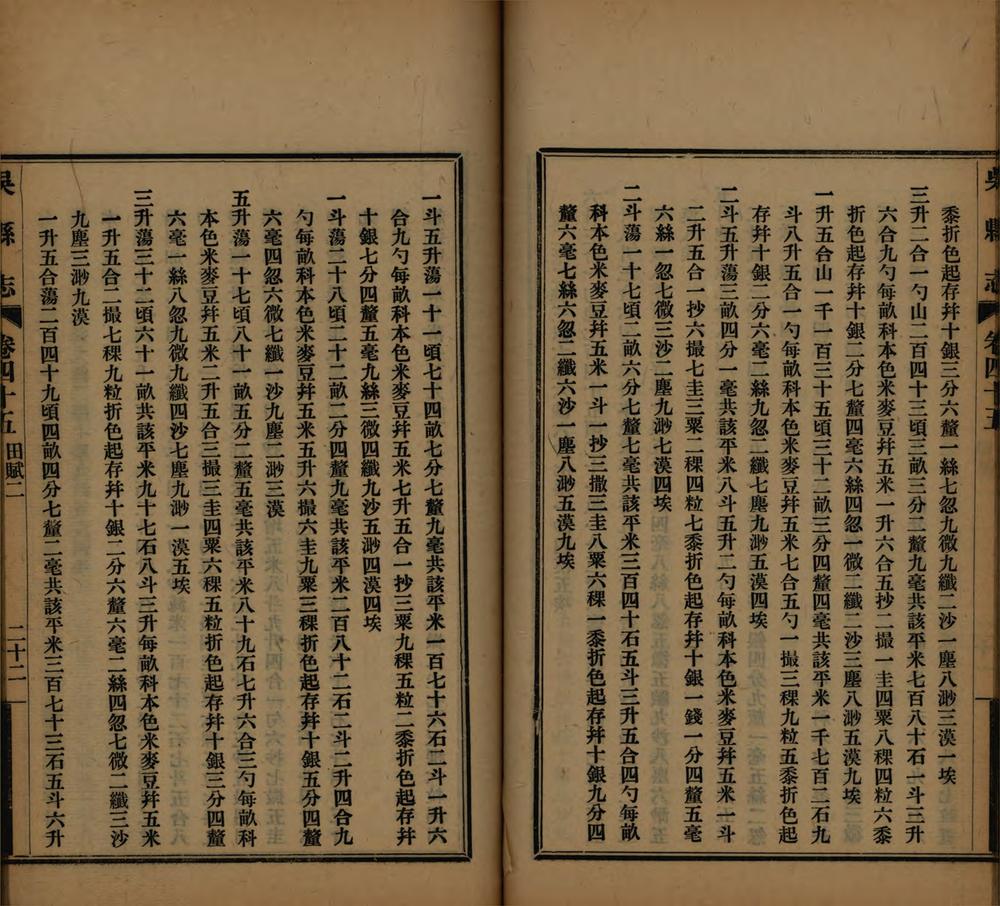 吳縣志 卷四十五
黍折色起存幷十銀三分六釐一絲七忽九微九纖二沙一塵八渺三漠一埃
三升二合一勺山二百四十三頃三畝三分二釐九毫共該平米七百八十石一斗三升
六合九勺每畝科本色米麥豆幷五米一升六合五抄二撮一圭四粟八稞四粒六黍
折色起存幷十銀二分七釐四毫六絲四忽一微二纖二沙三塵八渺五漠九埃
一升五合山一千一百三十五頃三十二畝三分四釐四毫共該平米一千七百二石九
斗八升五合一勺每畝科本色米麥豆幷五米七合五勺一撮三稞九粒五黍折色起
存幷十銀二分六毫二絲九忽二纖七塵九渺五漠四埃
二斗五升蕩三畝四分一毫共該平米八斗五升二勺每畝科本色米麥豆幷五米一斗
二升五合一抄六撮七圭三粟二稞四粒七黍折色起存幷十銀一錢一分四釐五毫
六絲一忽七微三沙二塵九渺七漠四埃
二斗蕩一十七頃二畝六分七釐七毫共該平米三百四十石五斗三升五合四勺每畝
科本色米麥豆幷五米一斗一抄三撒三圭八粟六稞一黍折色起存幷十銀九分四
釐六毫七絲六忽二纖六沙一塵八渺五漠九埃
一斗五升蕩一十一頃七十四畝七分七釐九毫共該平米一百七十六石二斗一升六
合九勺每畝科本色米麥豆幷五米七升五合一抄三粟九稞五粒二黍折色起存幷
十銀七分四釐五毫九絲三微四纖九沙五渺四漠四埃
一斗蕩二十八頃二十二畝二分四釐九毫共該平米二百八十二石二斗二升四合九
勺每畝科本色米麥豆幷五米五升六撮六圭九粟三稞折色起存幷十銀五分四釐
六毫四忽六微七纖一沙九塵二渺三漠
五升蕩一十七頃八十一畝五分二釐五毫共該平米八十九石七升六合三勺每畝科
本色米麥豆幷五米二升五合三撮三圭四粟六稞五粒折色起存幷十銀三分四釐
六毫一絲八忽九微九纖四沙七塵九渺一漠五埃
三升蕩三十二頃六十一畝共該平米九十七石八斗三升每畝科本色米麥豆幷五米
一升五合二撮七稞九粒折色起存幷十銀二分六釐六毫二絲四忽七微二纖三沙
九塵三渺九漠
一升五合蕩二百四十九頃四畝四分七釐二毫共該平米三百七十三石五斗六升
吳縣志 卷四十五 田賦二 二十二